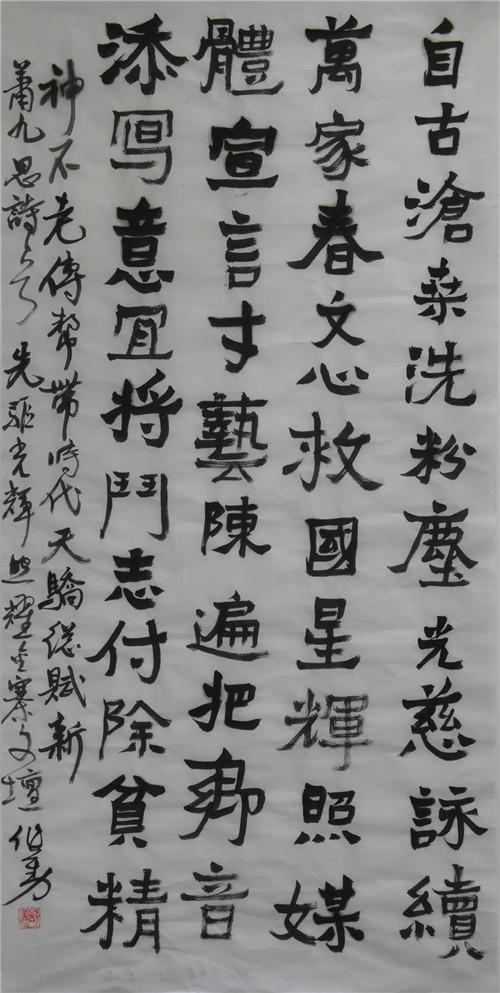 自古滄桑洗粉塵光慈詠續
萬家春文心救國星輝照媒
體宣言才藝陳遍把鄉音
添寫意宜將鬥志付除貧精
神不老傳幫帶時代天驕總賦新
蕭九思詩 先驅光輝照耀金寨文壇